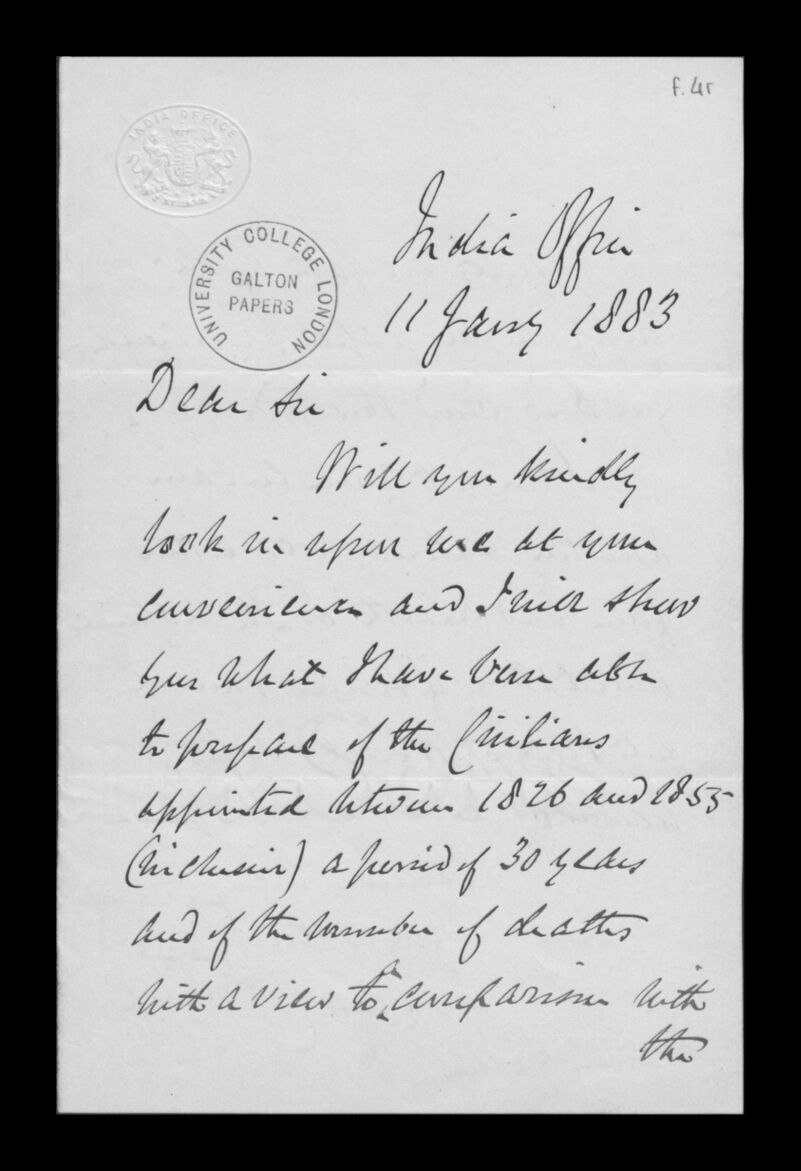 f.4r
INDIA OFFICE
UNIVERSITY COLLEGE LONDON
GALTON
PAPERS
India Office
11 Jany 1883
Dear Sir
Will you kindly
look in upon me at your
convenience and I will shew
you what I have been able
to prepare of the Civilians
appointed between 1826 and 1855
(inclusive) a period of 30 years
and of the number of deaths
with a view to a comparison with
the